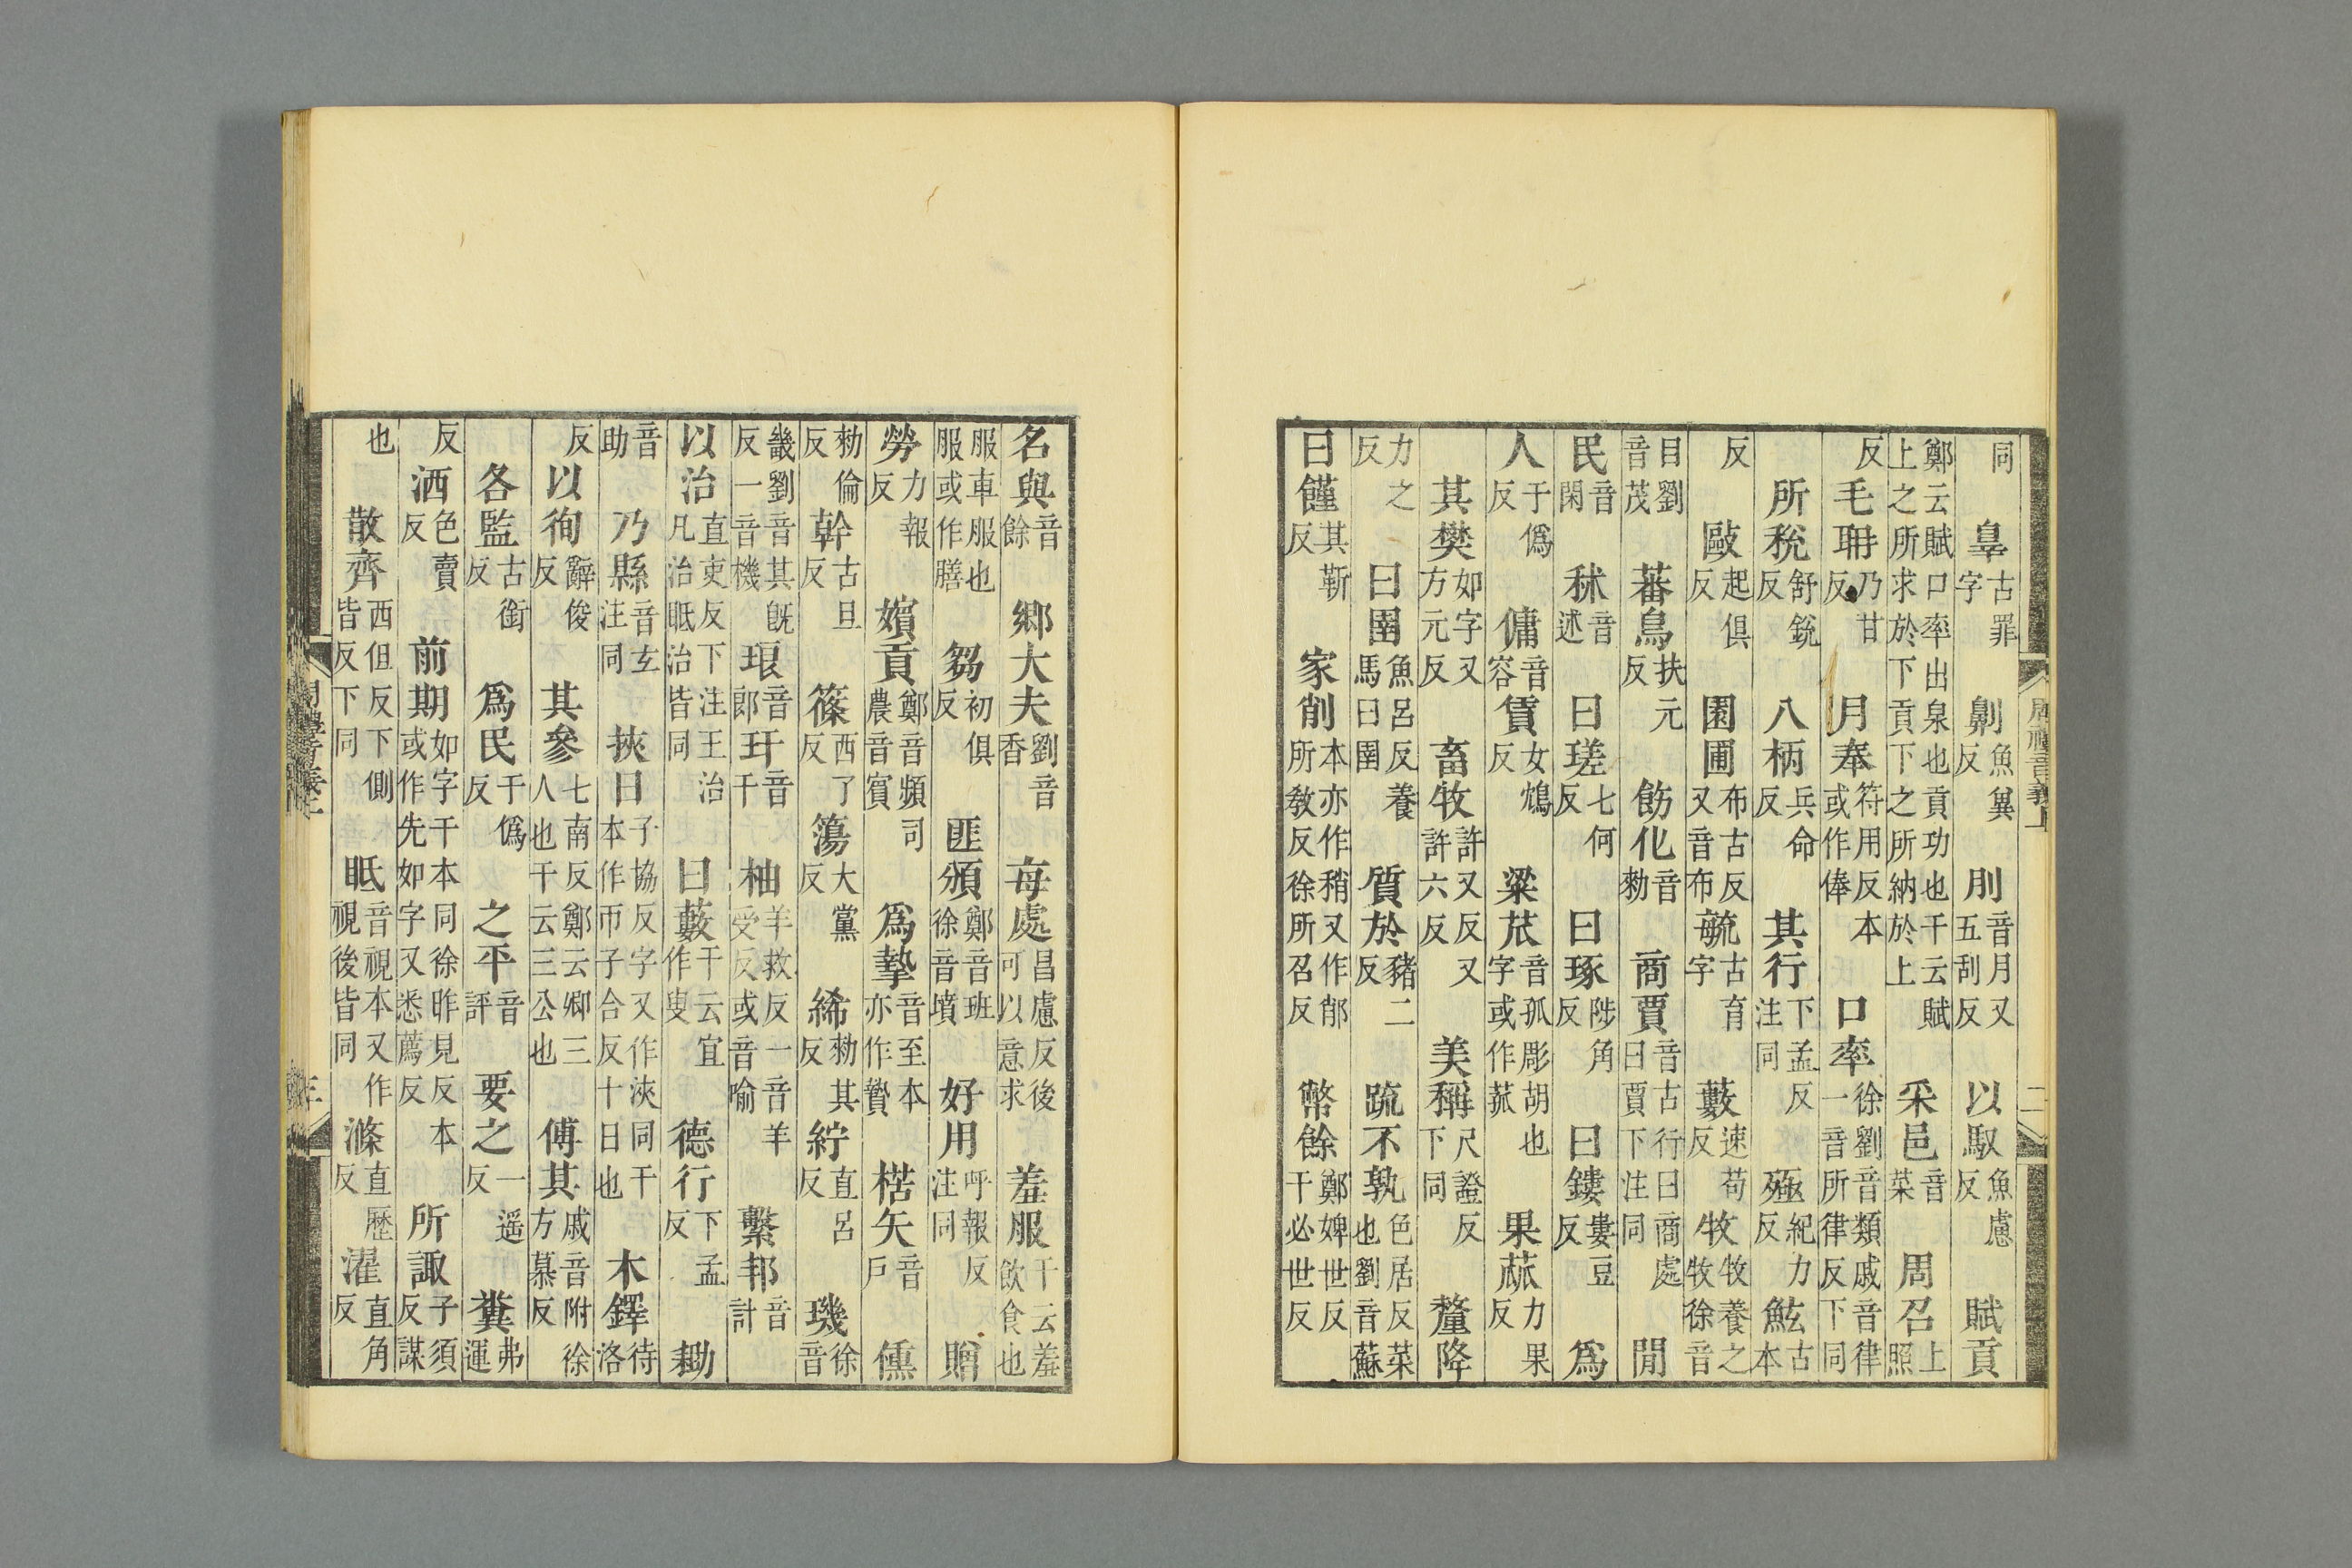 同辠古罪字劓魚翼反刖音月又五刮反以馭魚慮反賦貢
鄭云賦口率出泉也貢功也干云賦上之所求於下貢下之所納於上采邑音菜周召上照
反毛耼乃甘反月奉符用反本或作俸口率徐劉音類戚音律一音所律反下同
所稅舒銳反八柄兵命反其行下孟反注同殛紀力反鮌古本
反敺起俱反園圃布古反又音布毓古育字藪速苟反牧牧養之牧徐音
目劉音茂蕃鳥扶元反飭化音勑商賈音古行曰商處曰賈下注同閒
民音閑秫音述曰瑳七何反曰琢陟角反曰鏤婁豆反爲
人于僞反傭音容賃女鴆反粱苽音孤彫胡也字或作菰果蓏力果反
其樊如字又方元反畜牧許又反又許六反美稱尺證反下同釐降
力之反曰圉魚呂反養馬曰圉質於豬二反疏不孰色居反菜也劉音蘇
曰饉其靳反家削本亦作稍又作䣪所敎反徐所召反幣餘鄭婢世反干必世反
周禮音義上
二
名與音餘鄉大夫劉音香每處昌慮反後可以意求羞服干云羞飲食也
服車服也服或作膳芻初俱反匪頒鄭音班徐音墳好用呼報反注同贈
勞力報反嬪貢鄭音頻司農音賓爲摯音至本亦作贄楛矢音戶僡
勑倫反幹古旦反篠西了反簜大黨反絺勑其反紵直呂反璣徐音
畿劉音其旣反一音機琅音郎玕音干柚羊救反一音羊受反或音喻繫邦音計
以治直吏反下注王治凡治眂治皆同曰藪干云宜作叟德行下孟反耡
音助乃縣音玄注同挾日子協反字又作浹同干本作帀子合反十日也木鐸待洛
反以徇辭俊反其參七南反鄭云卿三人也干云三公也傅其戚音附徐方慕反
各監古銜反爲民于僞反之平音評要之一遥反糞弗運
反洒色賣反前期如字干本同徐昨見反本或作先如字又悉薦反所諏子須反謀
也散齊西但反下側皆反下同眂音視本又作視後皆同滌直歷反濯直角反
三